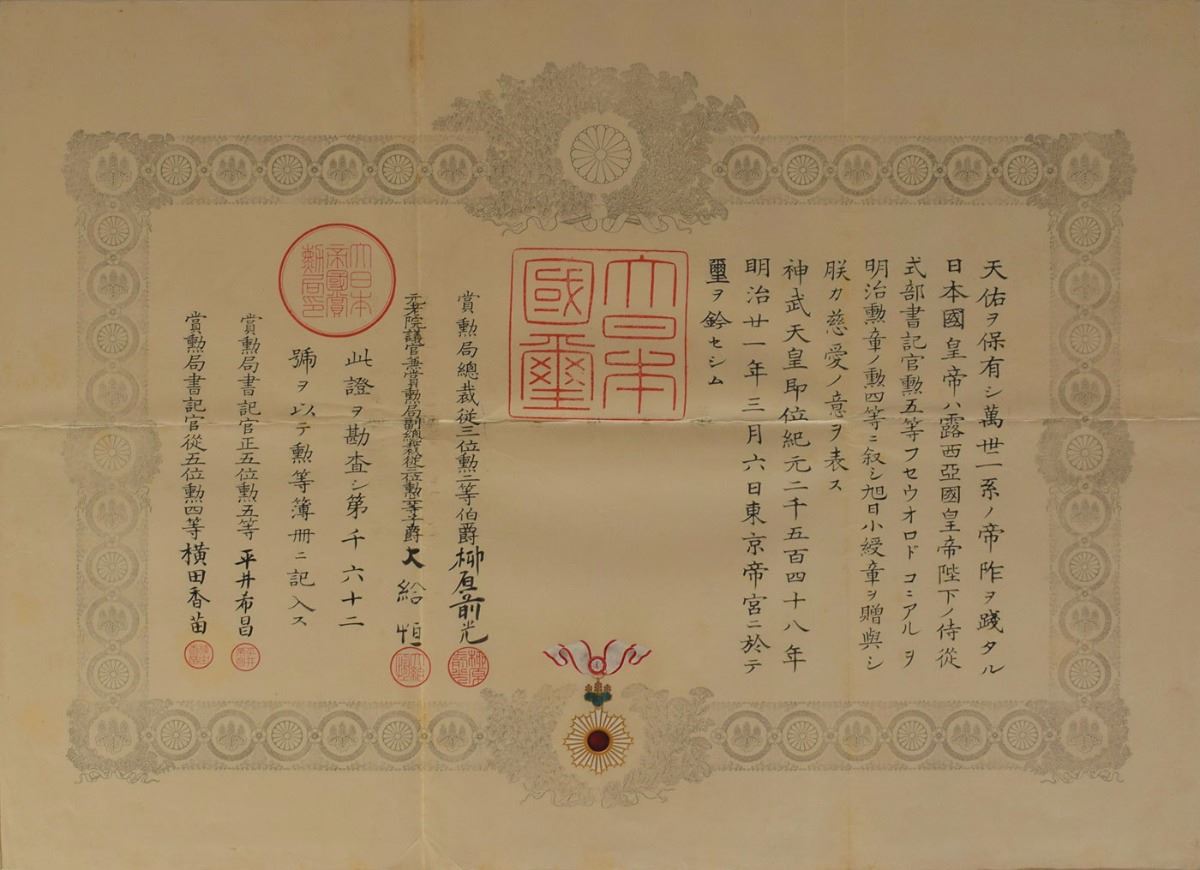 天佑ヲ保有シ萬世一系ノ帝祚ヲ踐タル
日本國皇帝ハ露西亞國皇帝陛下ノ侍從
式部書記官勲五等フセウオロドコニアルヲ
明治勲章ノ勲四等ニ叙シ旭日小綬章ヲ贈與シ
朕カ慈愛ノ意ヲ表ス
神武天皇即位紀元二千五百四十八年
明治廿一年三月六日東京帝宮ニ於テ
璽ヲ鈐セシム
大日本
國璽
賞勲局總裁從三位勲二等伯爵柳原前光
元老院議官兼賞勲局副總裁從三位勲二等子爵大給恒
大日本
帝國賞
勲局印
此證ヲ勘査シ第千六十二
號ヲ以テ勲等簿冊ニ記入ス
賞勲局書記官正五位勲五等平井希昌
賞勲局書記官從五位勲四等横田香苗